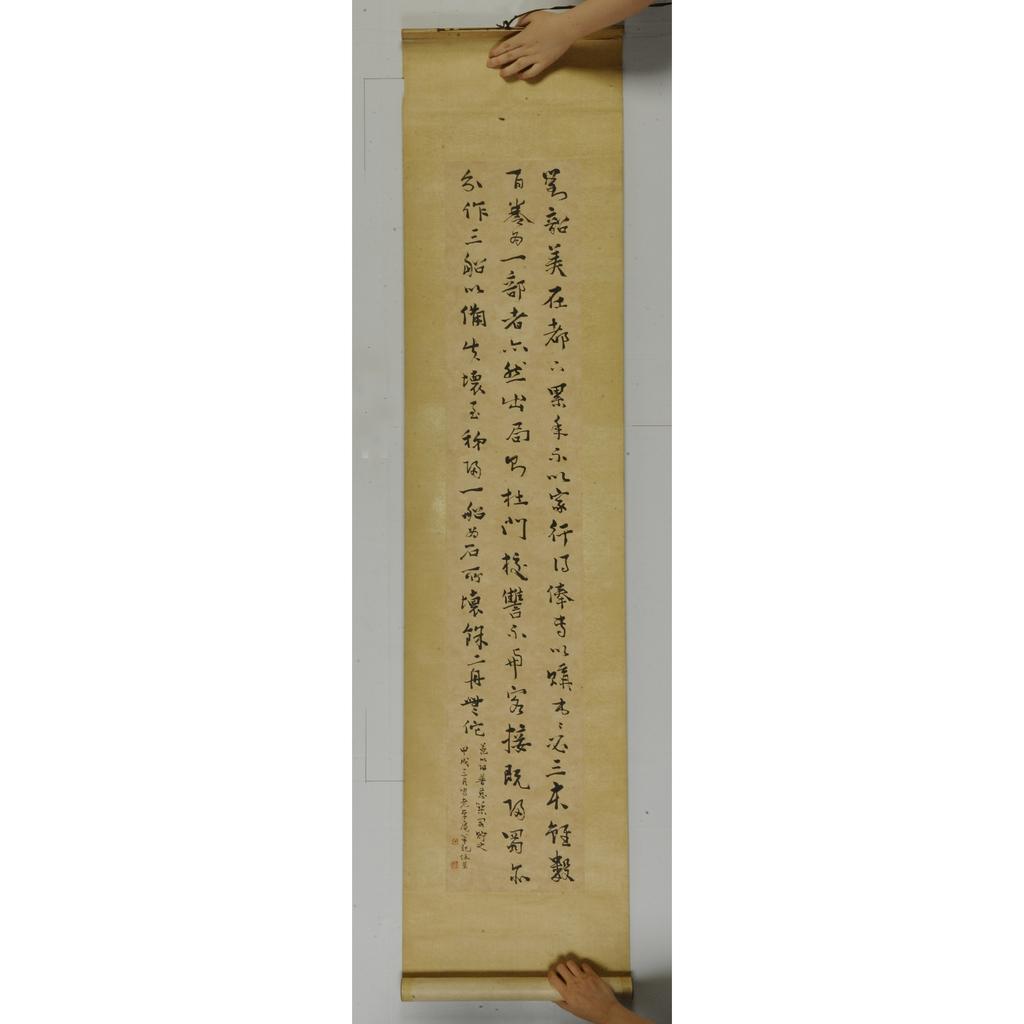 劉韶美在都下累年不以家行得俸專以購書書必三本雖數
百卷為一部者亦然出局則杜門校讎不與客接既歸蜀亦
分作三船以備失壞至秭歸一船為石所壞餘二舟無佗
甲戌三月寫老學庵筆記